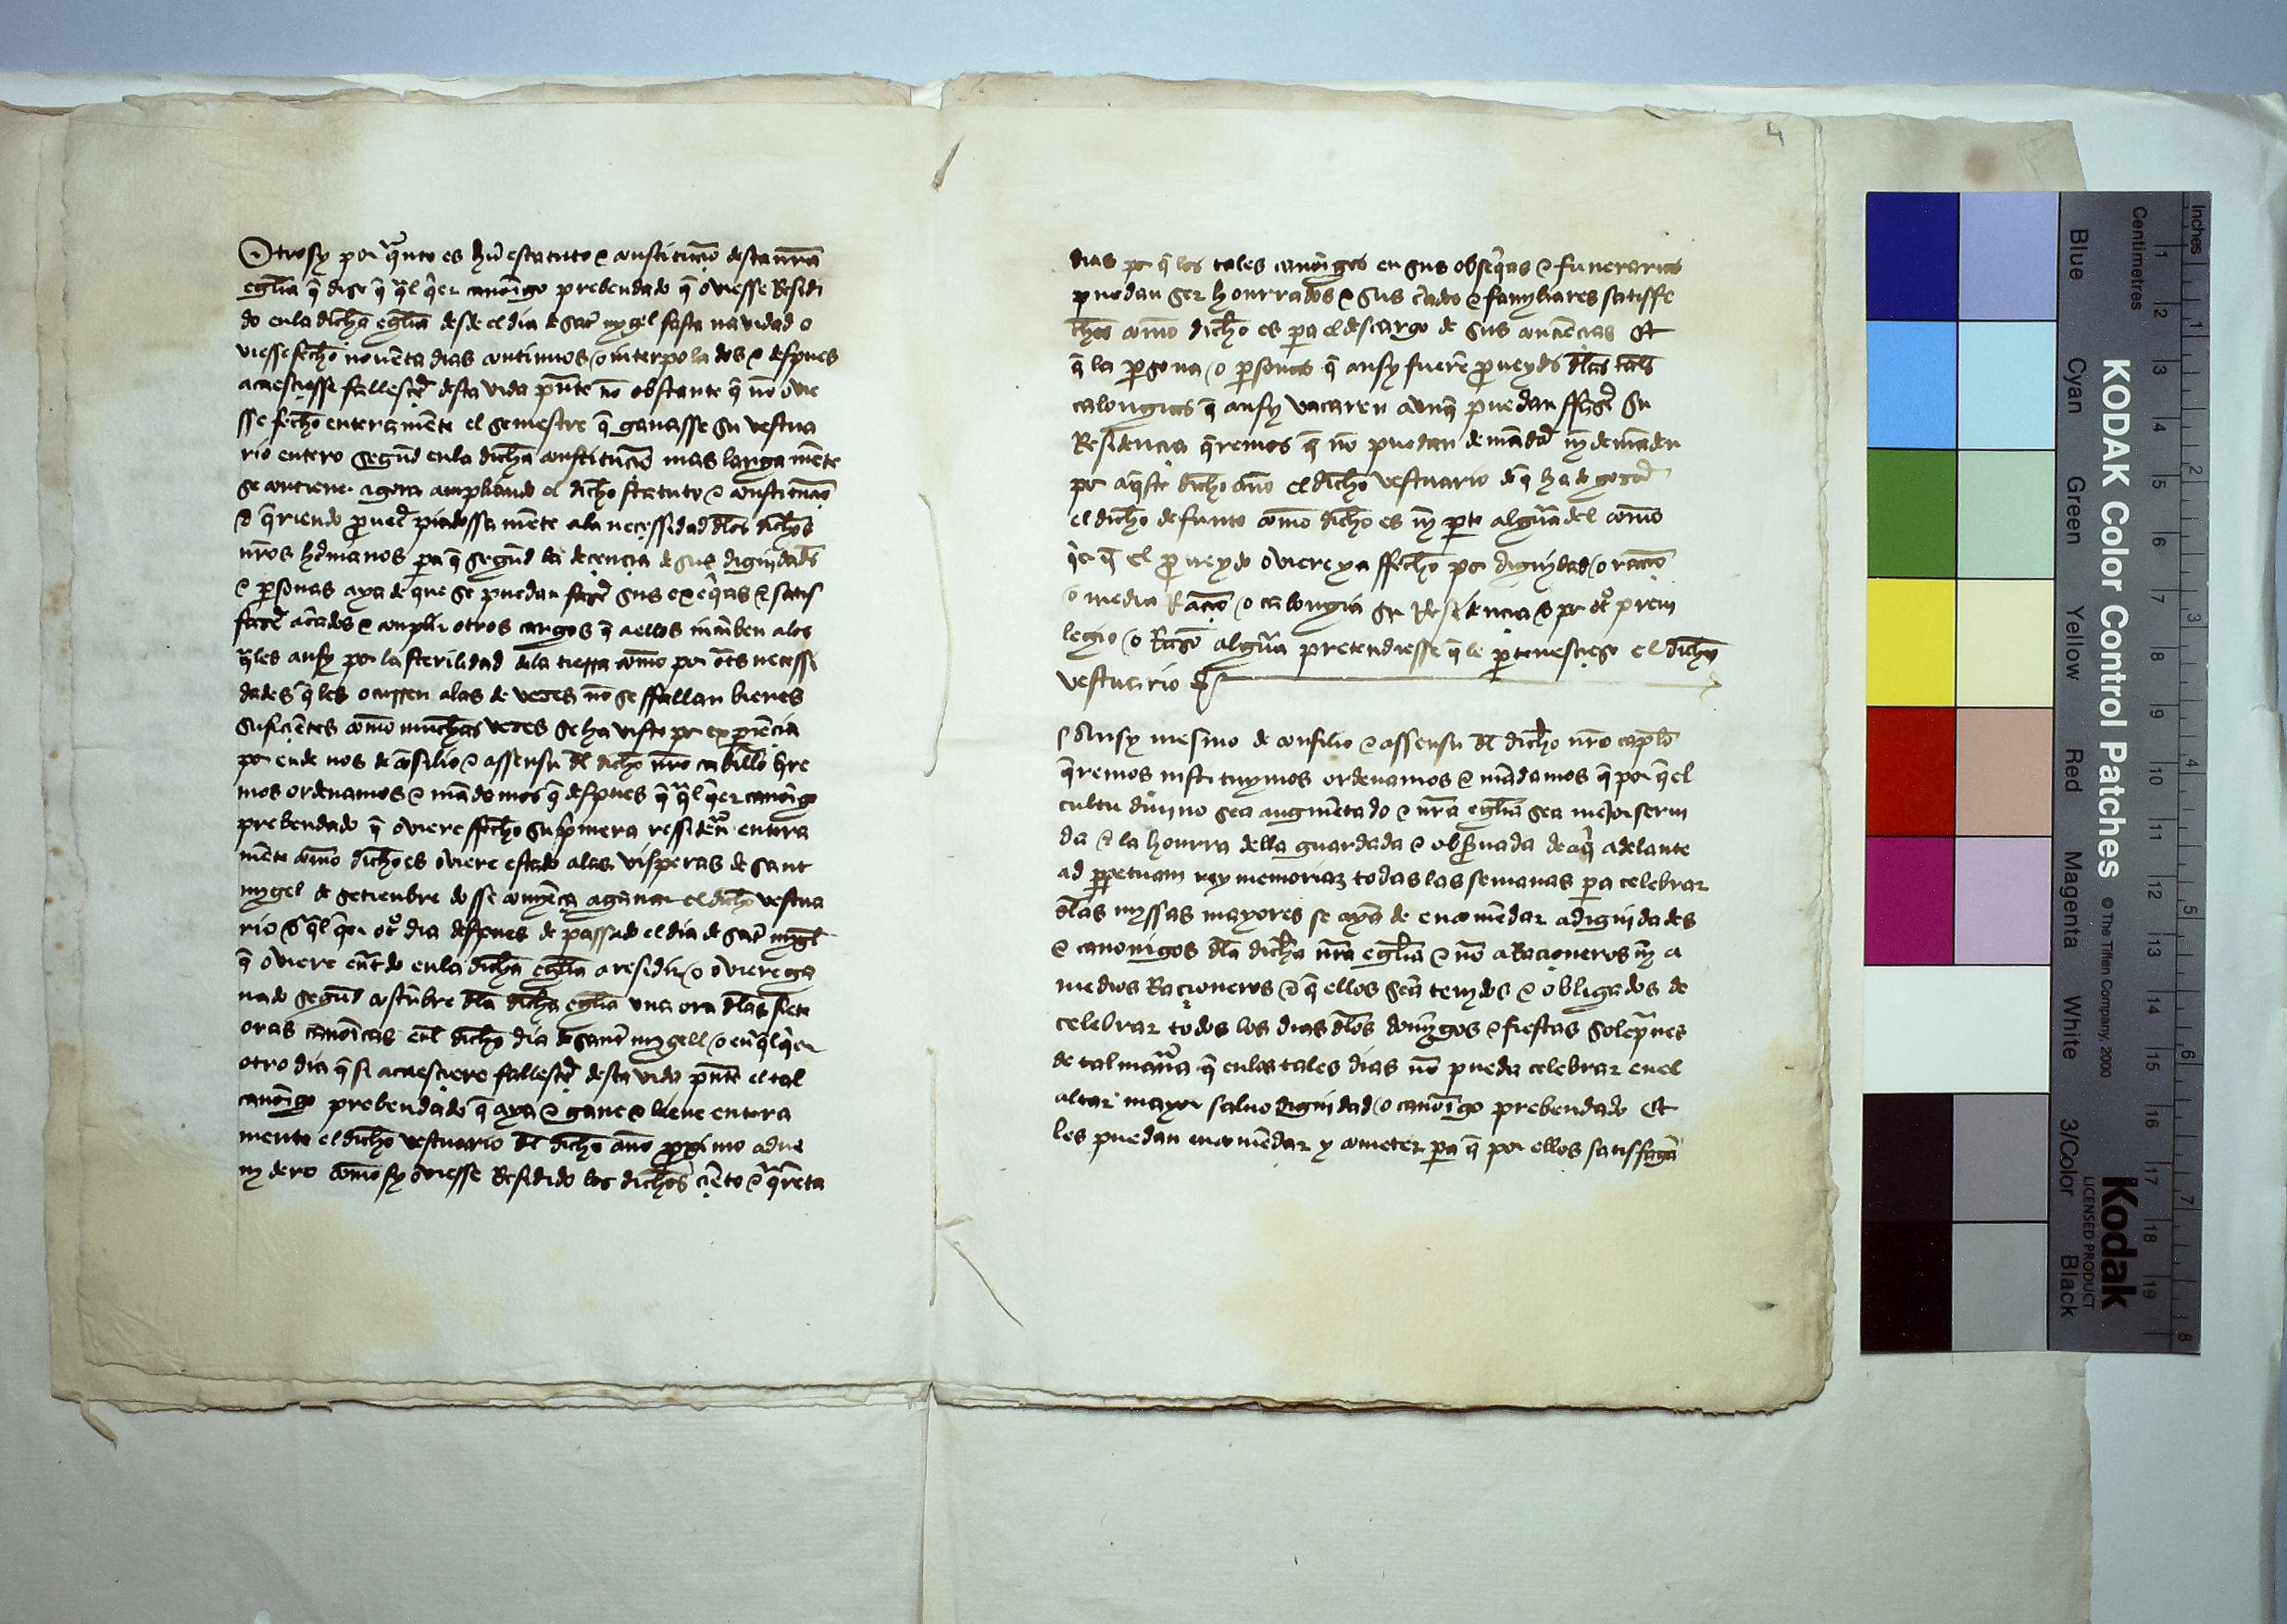 Otrosy por qnto es hũ estatuto e constituciõ desta nrã
eglia q̃ dize q̃ ql qer canoigo prebendado q̃ oviesse Resedi
do en la dicha eglia desde el dia de sant mygel fasta navidad o
viesse fecho novẽta dias continuos / o interpolados e despues
acaesçiesse fallesçer desta vida pñte no obstante q̃ no ovie
sse fecho enteramẽte el semestre q̃ ganasse su vestua
rio entero segund en la dicha constituciõ mas largamẽte
se contiene agora ampliando el dicho statuto e constituciõ
e q̃riendo proueer piadossamẽte a la neçessidad dlos dichos
nros hermanos pa q̃ segund la deçençia de sus dignidads
e psonas aya de que se puedan fazer sus exeqas e satis
fazer criados e conplir otros cargos q̃ a ellos incũben a los
qles ansy por la sterilidad dela tierra como por ots neçessi
dades q̃ les ocurren a las de vezes no se ffallan bienes
sufiçiẽtes como muchas vezes se ha visto por expiẽcia
por ende nos de cõsilio e assensu dl dicho nro cabillo q̃re
mos ordenamos e mãdamos q̃ despues q̃ ql qer canoigo
prebendado q̃ oviere ffecho su pmera ressidẽcia entera
mẽte como dicho es oviere estado a las visperas de sant
mygel de setienbre do sse comyẽça a ganar el dicho vestua
rio o ql qer otº dia despues de passado el dia de sant mygl
q̃ oviere entdo en la dicha eglia a residir / o oviere ga
nado segund costũbre dla dicha eglia una ora dlas siete
oras canoicas enl dicho dia de sant mygell / o en ql qer
otro dia q̃ si acaesçiere fallesçer desta vida pñte el tal
canoigo prebendado q̃ aya e gane e lieve entera
mente el dicho vestuario dl dicho año proximo adve
nydero como sy oviesse Residido los dichos çiẽto e qrẽta
4
dias por q̃ los tales canoigos en sus obseqas e funerarias
puedan ser honrrados e sus criados e famyliares satisffe
chos como dicho es pa el descargo de sus conçiẽcias Et
q̃ la psona / o psonas q̃ ansy fuerẽ proueydos dlas tals
calongias q̃ ansy vacaren avnq̃ puedan ffazer su
Residencia q̃remos q̃ no puedan demãdar ny demãden
por aqste dicho año el dicho vestuario dl q̃ ha de gozar
el dicho defunto como dicho es ny pte algũa del como
qer q̃ el proueydo oviere ya ffecho por dignydad / o racio
o media Racio / o calongia su Residencia o por otº previ
legio / o Razo algũa pretendiesse q̃ le ptenesçiese el dicho
vestuario
Ansy mesmo de consilio e assensu dl dicho nro caplo
q̃remos instituymos ordenamos e mãdamos q̃ por q̃ el
cultu diuino sea augmẽtado e nra eglia sea mejor serui
da e la honrra della guardada e obseruada de aq adelante
ad ppetuam rey memoriaz todas las semanas pa celebrar
dlas myssas mayores se ayã de encomẽdar a dignidades
e canonigos dla dicha nra eglia e no a Raçioneros ny a
medios Raçioneros e q̃ ellos seã tenydos e obligados de
celebrar todos los dias dlos domigos e fiestas solepnes
de tal manra q̃ en los tales dias no pueda celebrar en el
altar mayor saluo dignidad / o canoigo prebendado Et
les puedan encomẽdar y cometer pa q̃ por ellos satisfagã
KODAK Color Control Patches © The Tiffen Company, 2000
Kodak
LICENSED PRODUCT
Blue Cyan Green Yellow Red Magenta White 3/Color Black
Centimetres 1 2 3 4 5 6 7 8 9 10 11 12 13 14 15 16 17 18 19
Inches 1 2 3 4 5 6 7 8